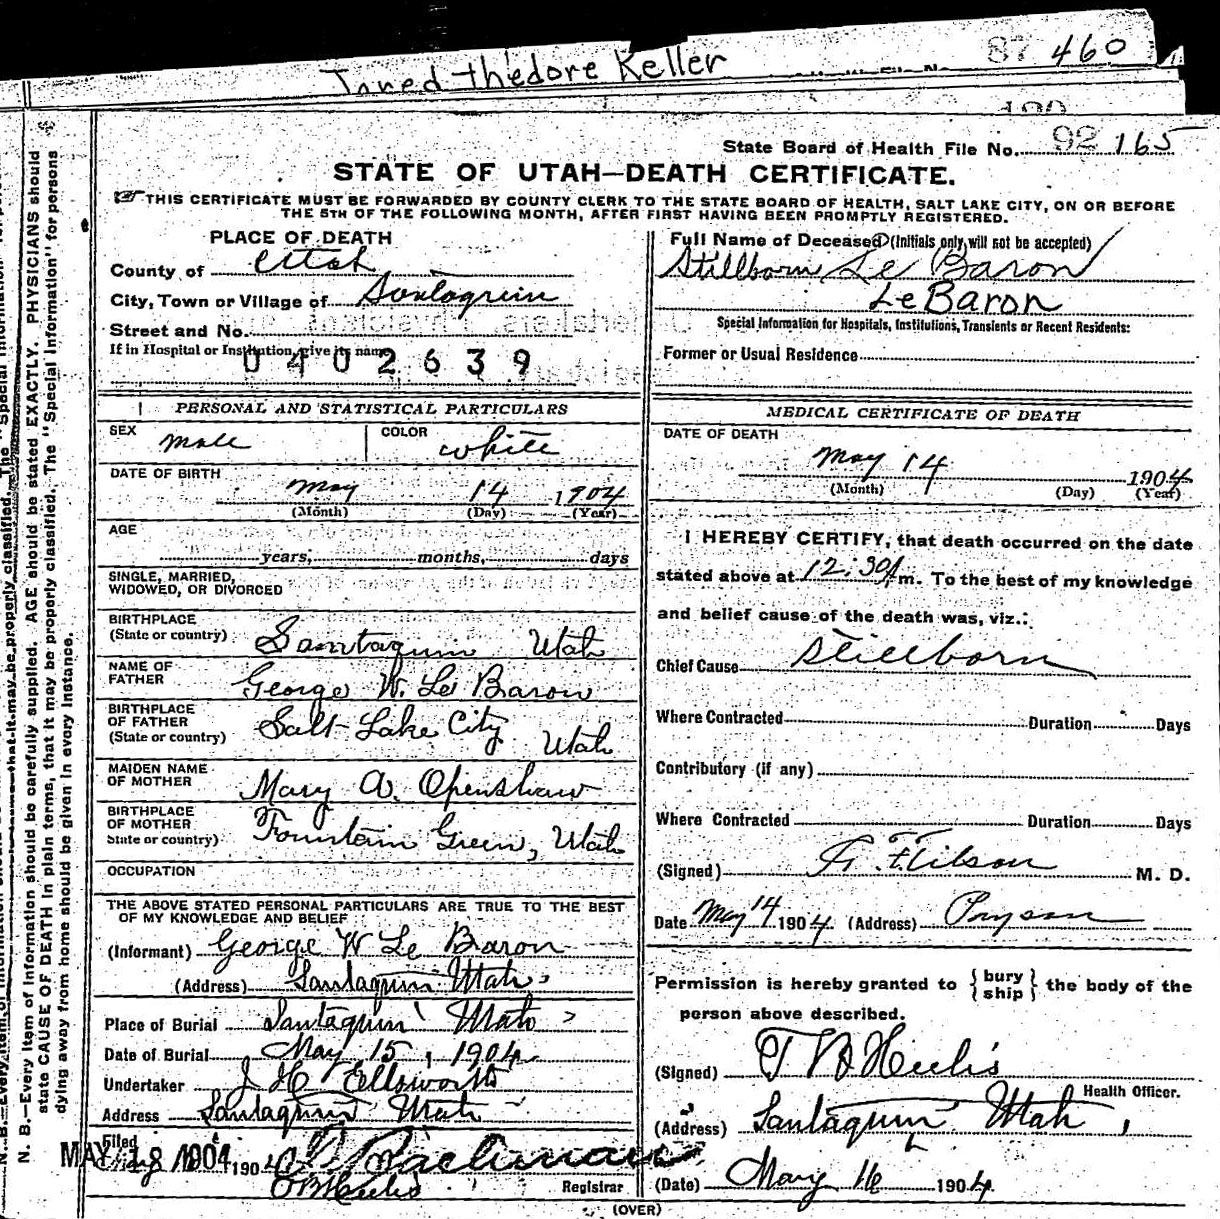 Jared thedore Keller
87 460
190
State Board of Health File No. 92 165
STATE OF UTAH—DEATH CERTIFICATE.
THIS CERTIFICATE MUST BE FORWARDED BY COUNTY CLERK TO THE STATE BOARD OF HEALTH, SALT LAKE CITY, ON OR BEFORE
THE 5TH OF THE FOLLOWING MONTH, AFTER FIRST HAVING BEEN PROMPTLY REGISTERED.
PLACE OF DEATH
County of Utah
City, Town or Village of Santaquin
Street and No.
If in Hospital or Institution, give its name
0402639
Full Name of Deceased (Initials only will not be accepted)
Stillborn Le Baron
LeBaron
Special Information for Hospitals, Institutions, Transients or Recent Residents:
Former or Usual Residence
PERSONAL AND STATISTICAL PARTICULARS
SEX male COLOR white
DATE OF BIRTH
May 14 1904
(Month) (Day) (Year)
AGE
years, months, days
SINGLE, MARRIED,
WIDOWED, OR DIVORCED
BIRTHPLACE
(State or country) Santaquin Utah
NAME OF
FATHER George W. Le Baron
BIRTHPLACE
OF FATHER
(State or country) Salt Lake City Utah
MAIDEN NAME
OF MOTHER Mary A. Openshaw
BIRTHPLACE
OF MOTHER
State or country) Fountain Green, Utah
OCCUPATION
THE ABOVE STATED PERSONAL PARTICULARS ARE TRUE TO THE BEST
OF MY KNOWLEDGE AND BELIEF
(Informant) George W Le Baron
(Address) Santaquin Utah
Place of Burial Santaquin Utah
Date of Burial May 15, 1904
Undertaker J H Ellsworth
Address Santaquin Utah
Filed
MAY 18 1904 190
Registrar
MEDICAL CERTIFICATE OF DEATH
DATE OF DEATH
May 14 1904
(Month) (Day) (Year)
I HEREBY CERTIFY, that death occurred on the date
stated above at 12:30 m. To the best of my knowledge
and belief cause of the death was, viz.:
Chief Cause Stillborn
Where Contracted Duration Days
Contributory (if any)
Where Contracted Duration Days
(Signed) M. D.
Date May 14 1904. (Address) Payson
Permission is hereby granted to { bury ship } the body of the
person above described.
(Signed)
Health Officer.
(Address) Santaquin Utah,
(Date) May 16 1904.
(OVER)
N. B.—Every item of information should be carefully supplied. AGE should be stated EXACTLY. PHYSICIANS should
state CAUSE OF DEATH in plain terms, that it may be properly classified. The "Special Information" for persons
dying away from home should be given in every instance.